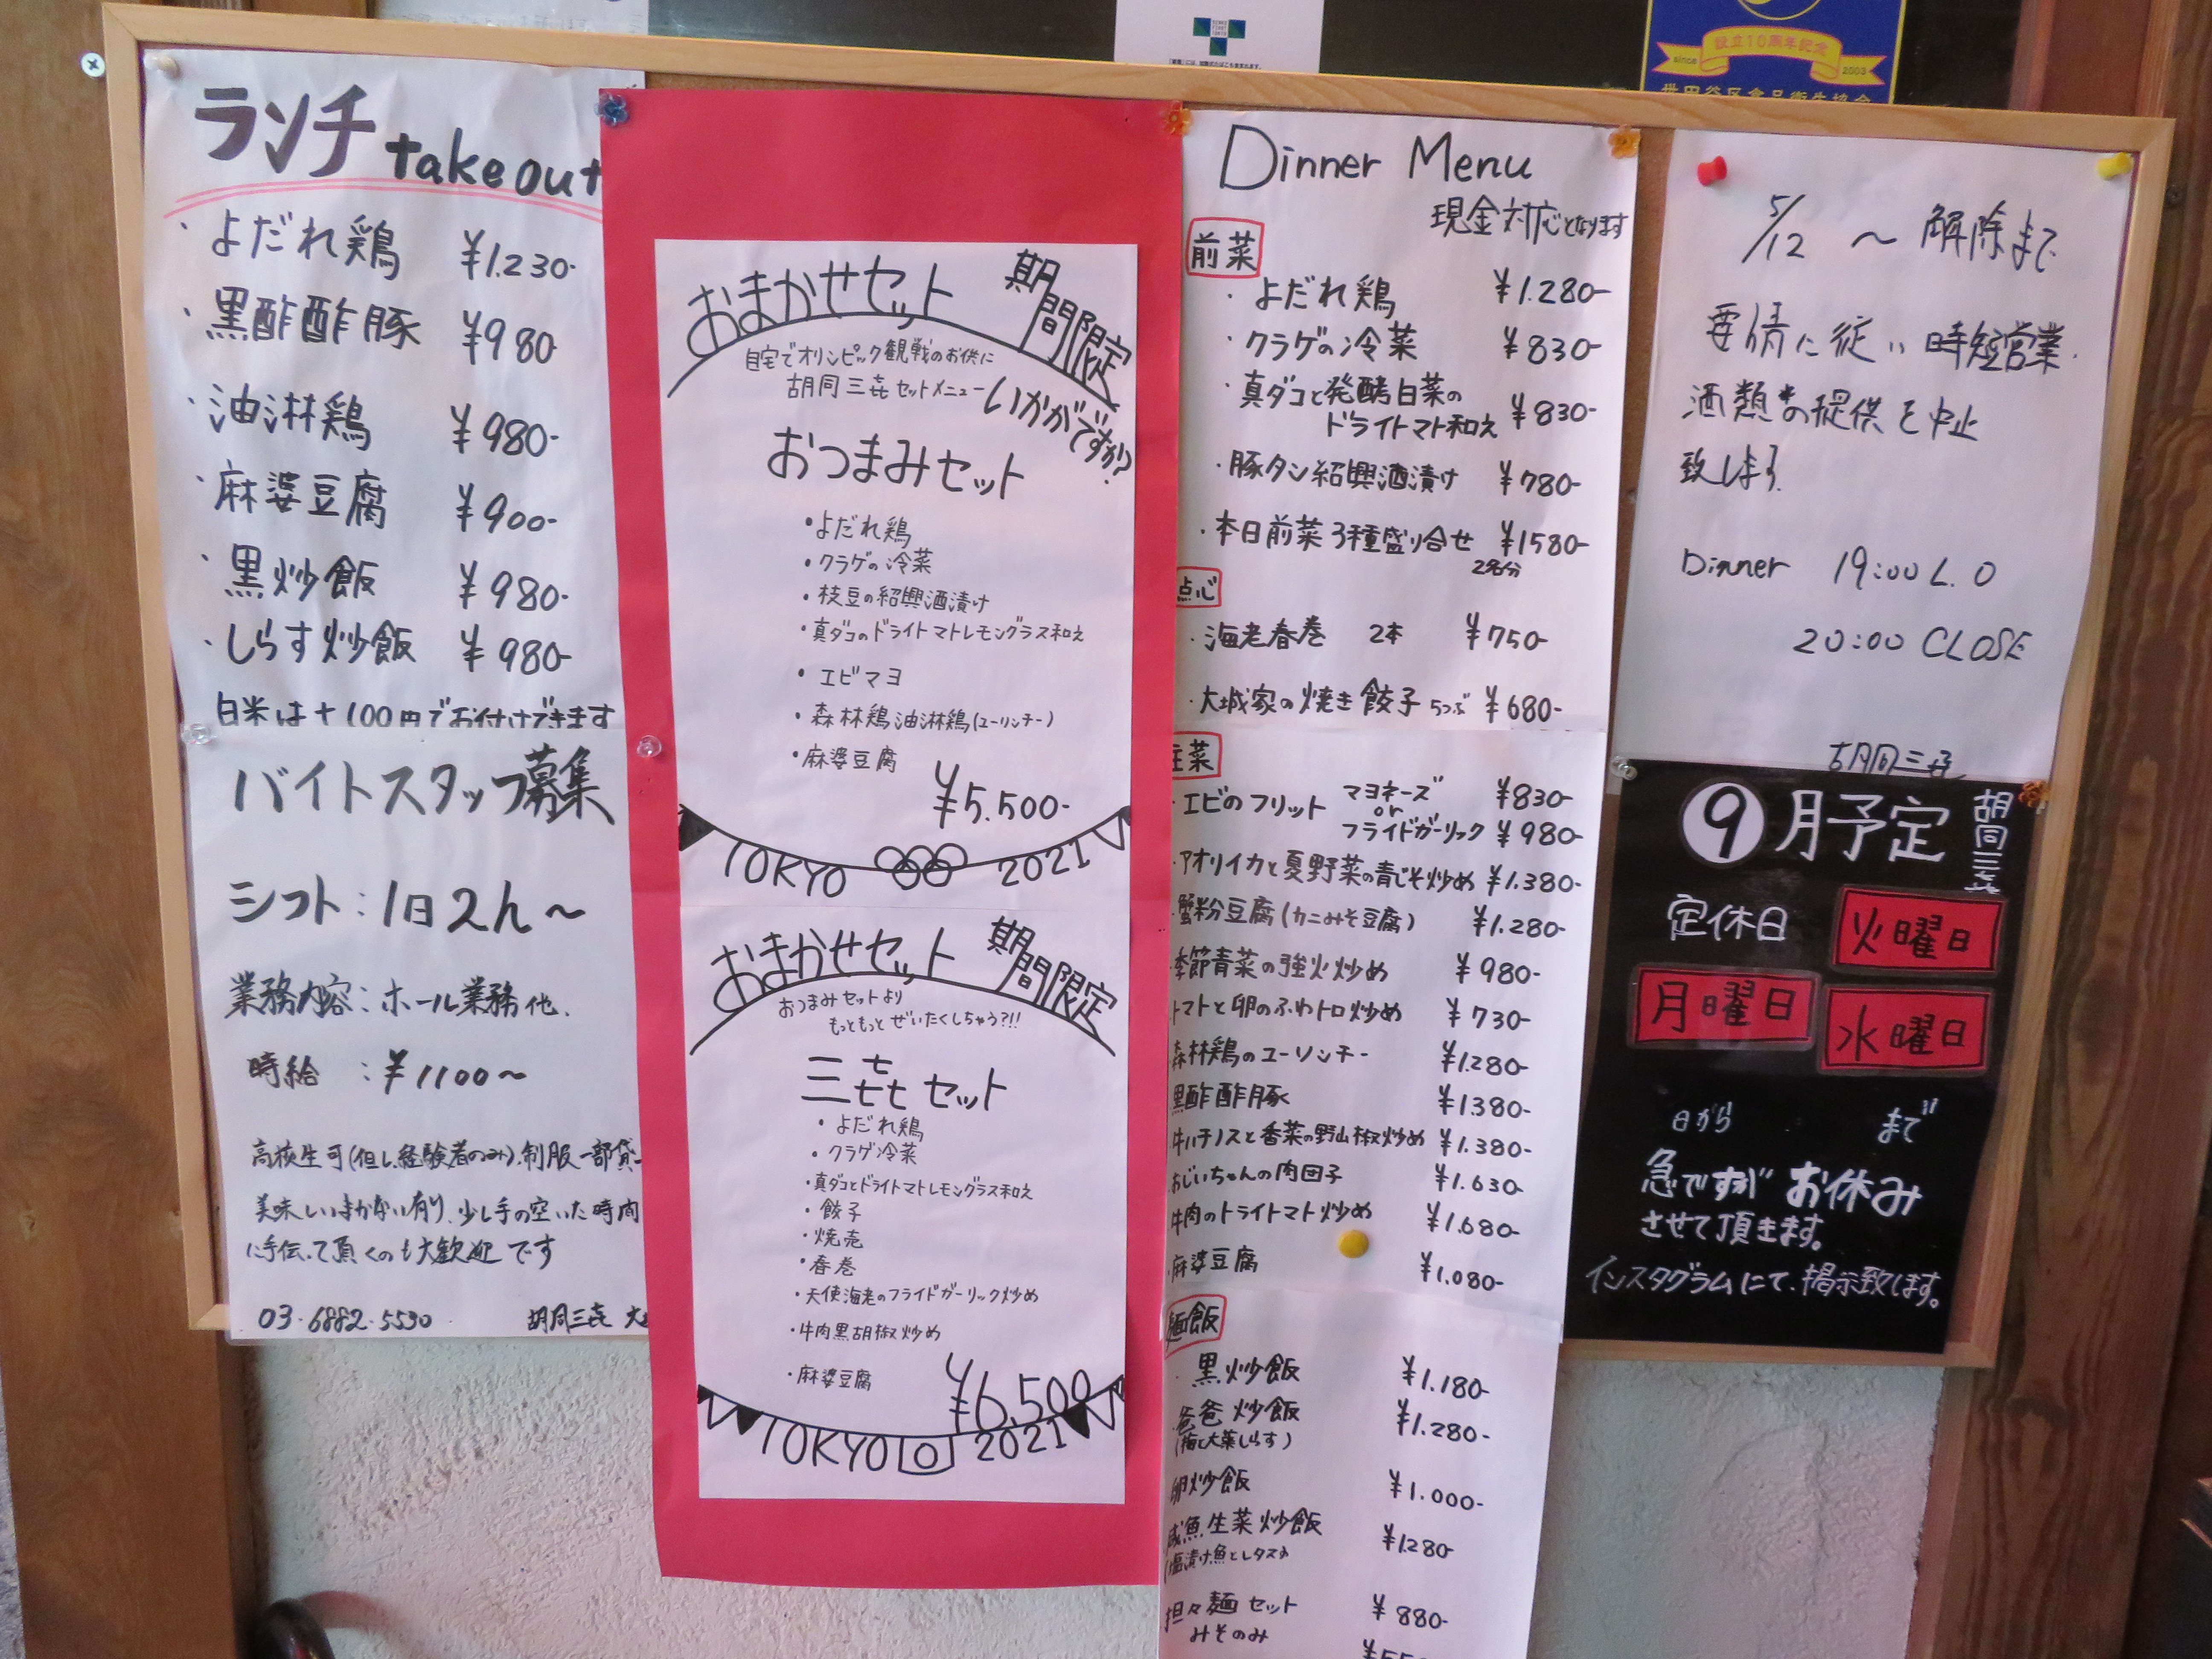 設立10周年記念
since 2003
世田谷区食品衛生協会
ランチ takeout
・よだれ鶏 ¥1.230-
・黒酢酢豚 ¥980
・油淋鶏 ¥980-
・麻婆豆腐 ¥900-
・黒炒飯 ¥980-
・しらす炒飯 ¥980-
白米は+100円でお付けできます
バイトスタッフ募集
シフト:1日2h〜
業務内容:ホール業務他.
時給 :¥1100〜
高校生可(但し経験者のみ).制服一部貸
美味しいまかない有り、少し手の空いた時間
に手伝って頂くのも大歓迎です
03-6882-5530 胡同三㐂
おまかせセット 期間限定
自宅でオリンピック観戦のお供に
胡同三㐂セットメニューいかがですか?
おつまみセット
・よだれ鶏
・クラゲの冷菜
・枝豆の紹興酒漬け
・真ダコのドライトマトレモングラス和え
・エビマヨ
・森林鶏油淋鶏(ユーリンチー)
・麻婆豆腐
¥5.500-
TOKYO 2021
おまかせセット 期間限定
おつまみセットより
もっともっと ぜいたくしちゃう?!!
三㐂セット
・よだれ鶏
・クラゲ冷菜
・真ダコとドライトマトレモングラス和え
・餃子
・焼売
・春巻
・天使海老のフライドガーリック炒め
・牛肉黒胡椒炒め
・麻婆豆腐
¥6,500
TOKYO 2021
Dinner Menu
現金対応となります
前菜
・よだれ鶏 ¥1.280-
・クラゲの冷菜 ¥830-
・真ダコと発酵白菜の
ドライトマト和え ¥830-
・豚タン紹興酒漬け ¥780-
・本日前菜3種盛り合せ ¥1580-
2名分
点心
・海老春巻 2本 ¥750-
・大城家の焼き餃子 5つぶ ¥680-
主菜
・エビのフリット マヨネーズ ¥830-
or
フライドガーリック ¥980-
・アオリイカと夏野菜の青じそ炒め ¥1.380-
・蟹粉豆腐(カニみそ豆腐) ¥1.280-
・季節青菜の強火炒め ¥980-
トマトと卵のふわトロ炒め ¥730-
森林鶏のユーリンチー ¥1.280-
黒酢酢豚 ¥1.380-
牛ハチノスと香菜の野山椒炒め ¥1.380-
おじいちゃんの肉団子 ¥1.630-
牛肉のドライトマト炒め ¥1.680-
・麻婆豆腐 ¥1.080-
麺飯
・黒炒飯 ¥1.180-
爸爸炒飯 ¥1.280-
(梅と大葉しらす)
卵炒飯 ¥1.000-
咸魚生菜炒飯 ¥1.280
塩漬け魚とレタスの
担々麺セット ¥880-
みそのみ
5/12 〜 解除まで
要請に従い時短営業.
酒類の提供を中止
致します.
Dinner 19:00 L.O
20:00 CLOSE
胡同三㐂
9月予定 胡同三㐂
定休日 火曜日
月曜日 水曜日
日から まで
急ですがお休み
させて頂きます。
インスタグラムにて、掲示致します。